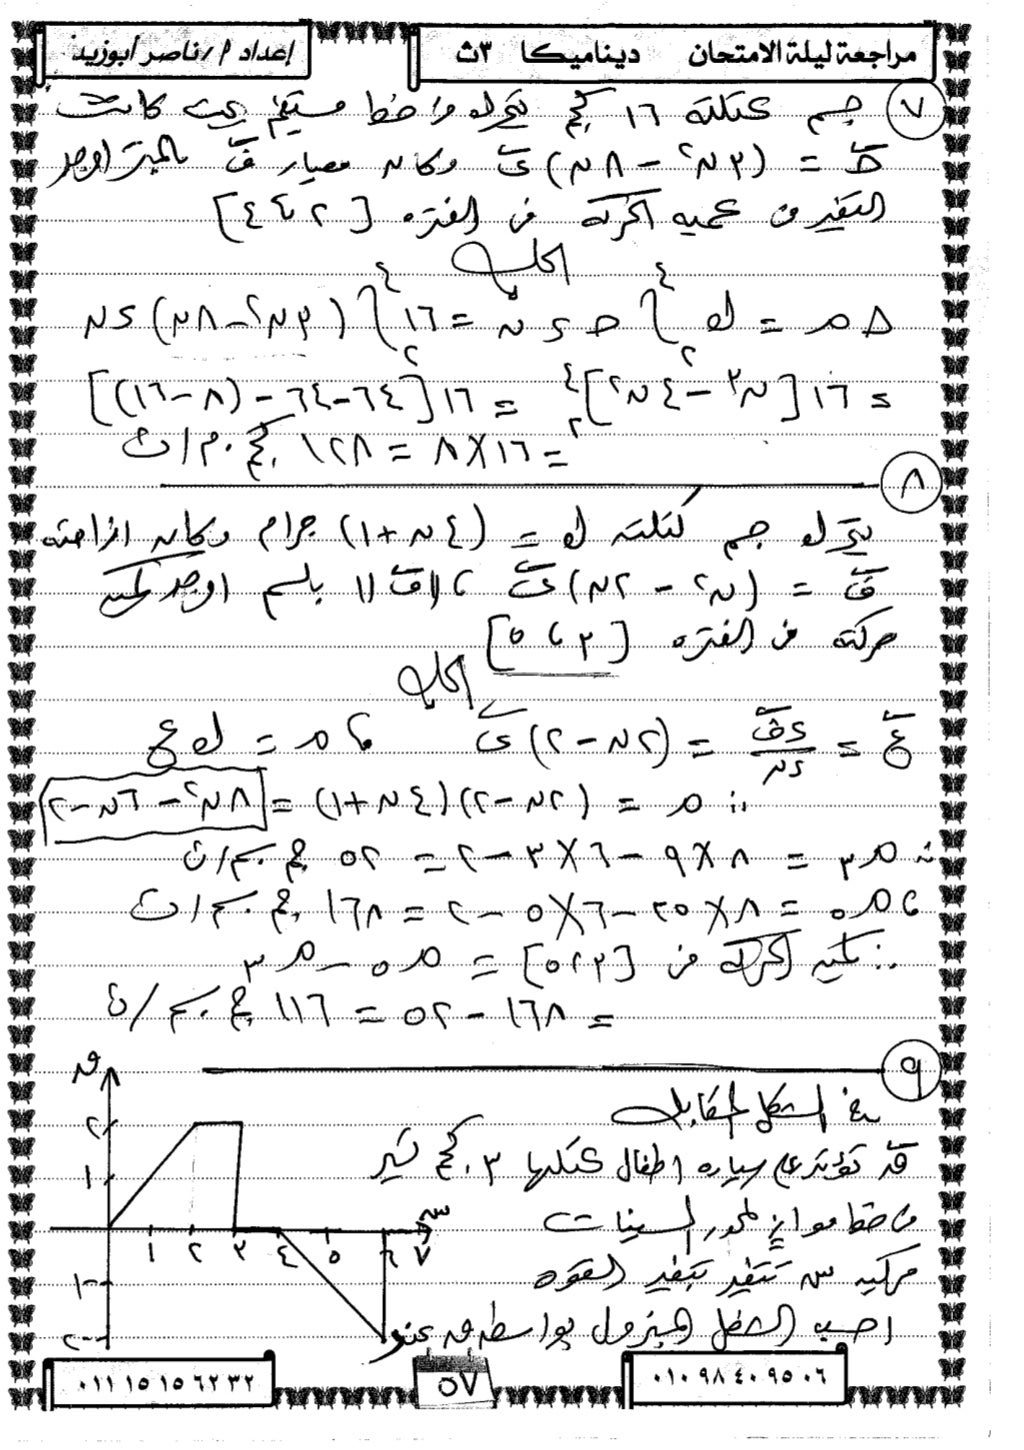 مراجعة ليلة الامتحان ديناميكا ٣ث
إعداد أ/ناصر أبوزيد
٧ جسم كتلته ١٦ كجم يتحرك فى خط مستقيم بحيث كانت
حَـ = (٣ن٢ - ٨ن) ىَ وكان معيار فَ بالمتر اوجد
التغير فى كمية الحركة فى الفتره [٢ ، ٤]
الحل
Δ م = ك ∫ حـ د ن = ١٦ ∫٢٤ (٣ن٢ - ٨ن) د ن
= ١٦ [ن٣ - ٤ن٢]٢٤ = ١٦ [٦٤ - ٦٤ - (٨ - ١٦)]
= ١٦ × ٨ = ١٢٨ كجم . م/ث
٨
يتحرك جسم كتلته ك = (٤ن + ١) جرام وكان ازاحته
فَ = (ن٢ - ٢ن) ىَ ، ||فَ|| بالسم اوجد كمية
حركته فى الفتره [٣ ، ٥]
الحل
عَ = دفَ/دن = (٢ن - ٢) ىَ ، م = ك ع
∴ م = (٢ن - ٢)(٤ن + ١) = ٨ن٢ - ٦ن - ٢
∴ م٣ = ٨ × ٩ - ٦ × ٣ - ٢ = ٥٢ جم . سم/ث
، م٥ = ٨ × ٢٥ - ٦ × ٥ - ٢ = ١٦٨ جم . سم/ث
∴ كمية الحركة فى [٣ ، ٥] = م٥ - م٣
= ١٦٨ - ٥٢ = ١١٦ جم . سم/ث
٩
فى الشكل المقابل
قَ تؤثر على سياره اطفال كتلتها ٣ كجم تسير
فى خط موازٍ لمحور السينات
مركبه س تتغير بتغير القوه
احسب الشغل المبذول بواسطه ق عندما
ق
٢
١
١ ٢ ٣ ٤ ٥ ٦ ٧ س
-١
-٢
٠١١ ١٥ ١٥ ٦٢ ٣٢
٥٧
٠١٠ ٩٨ ٤٠ ٩٥ ٠٦